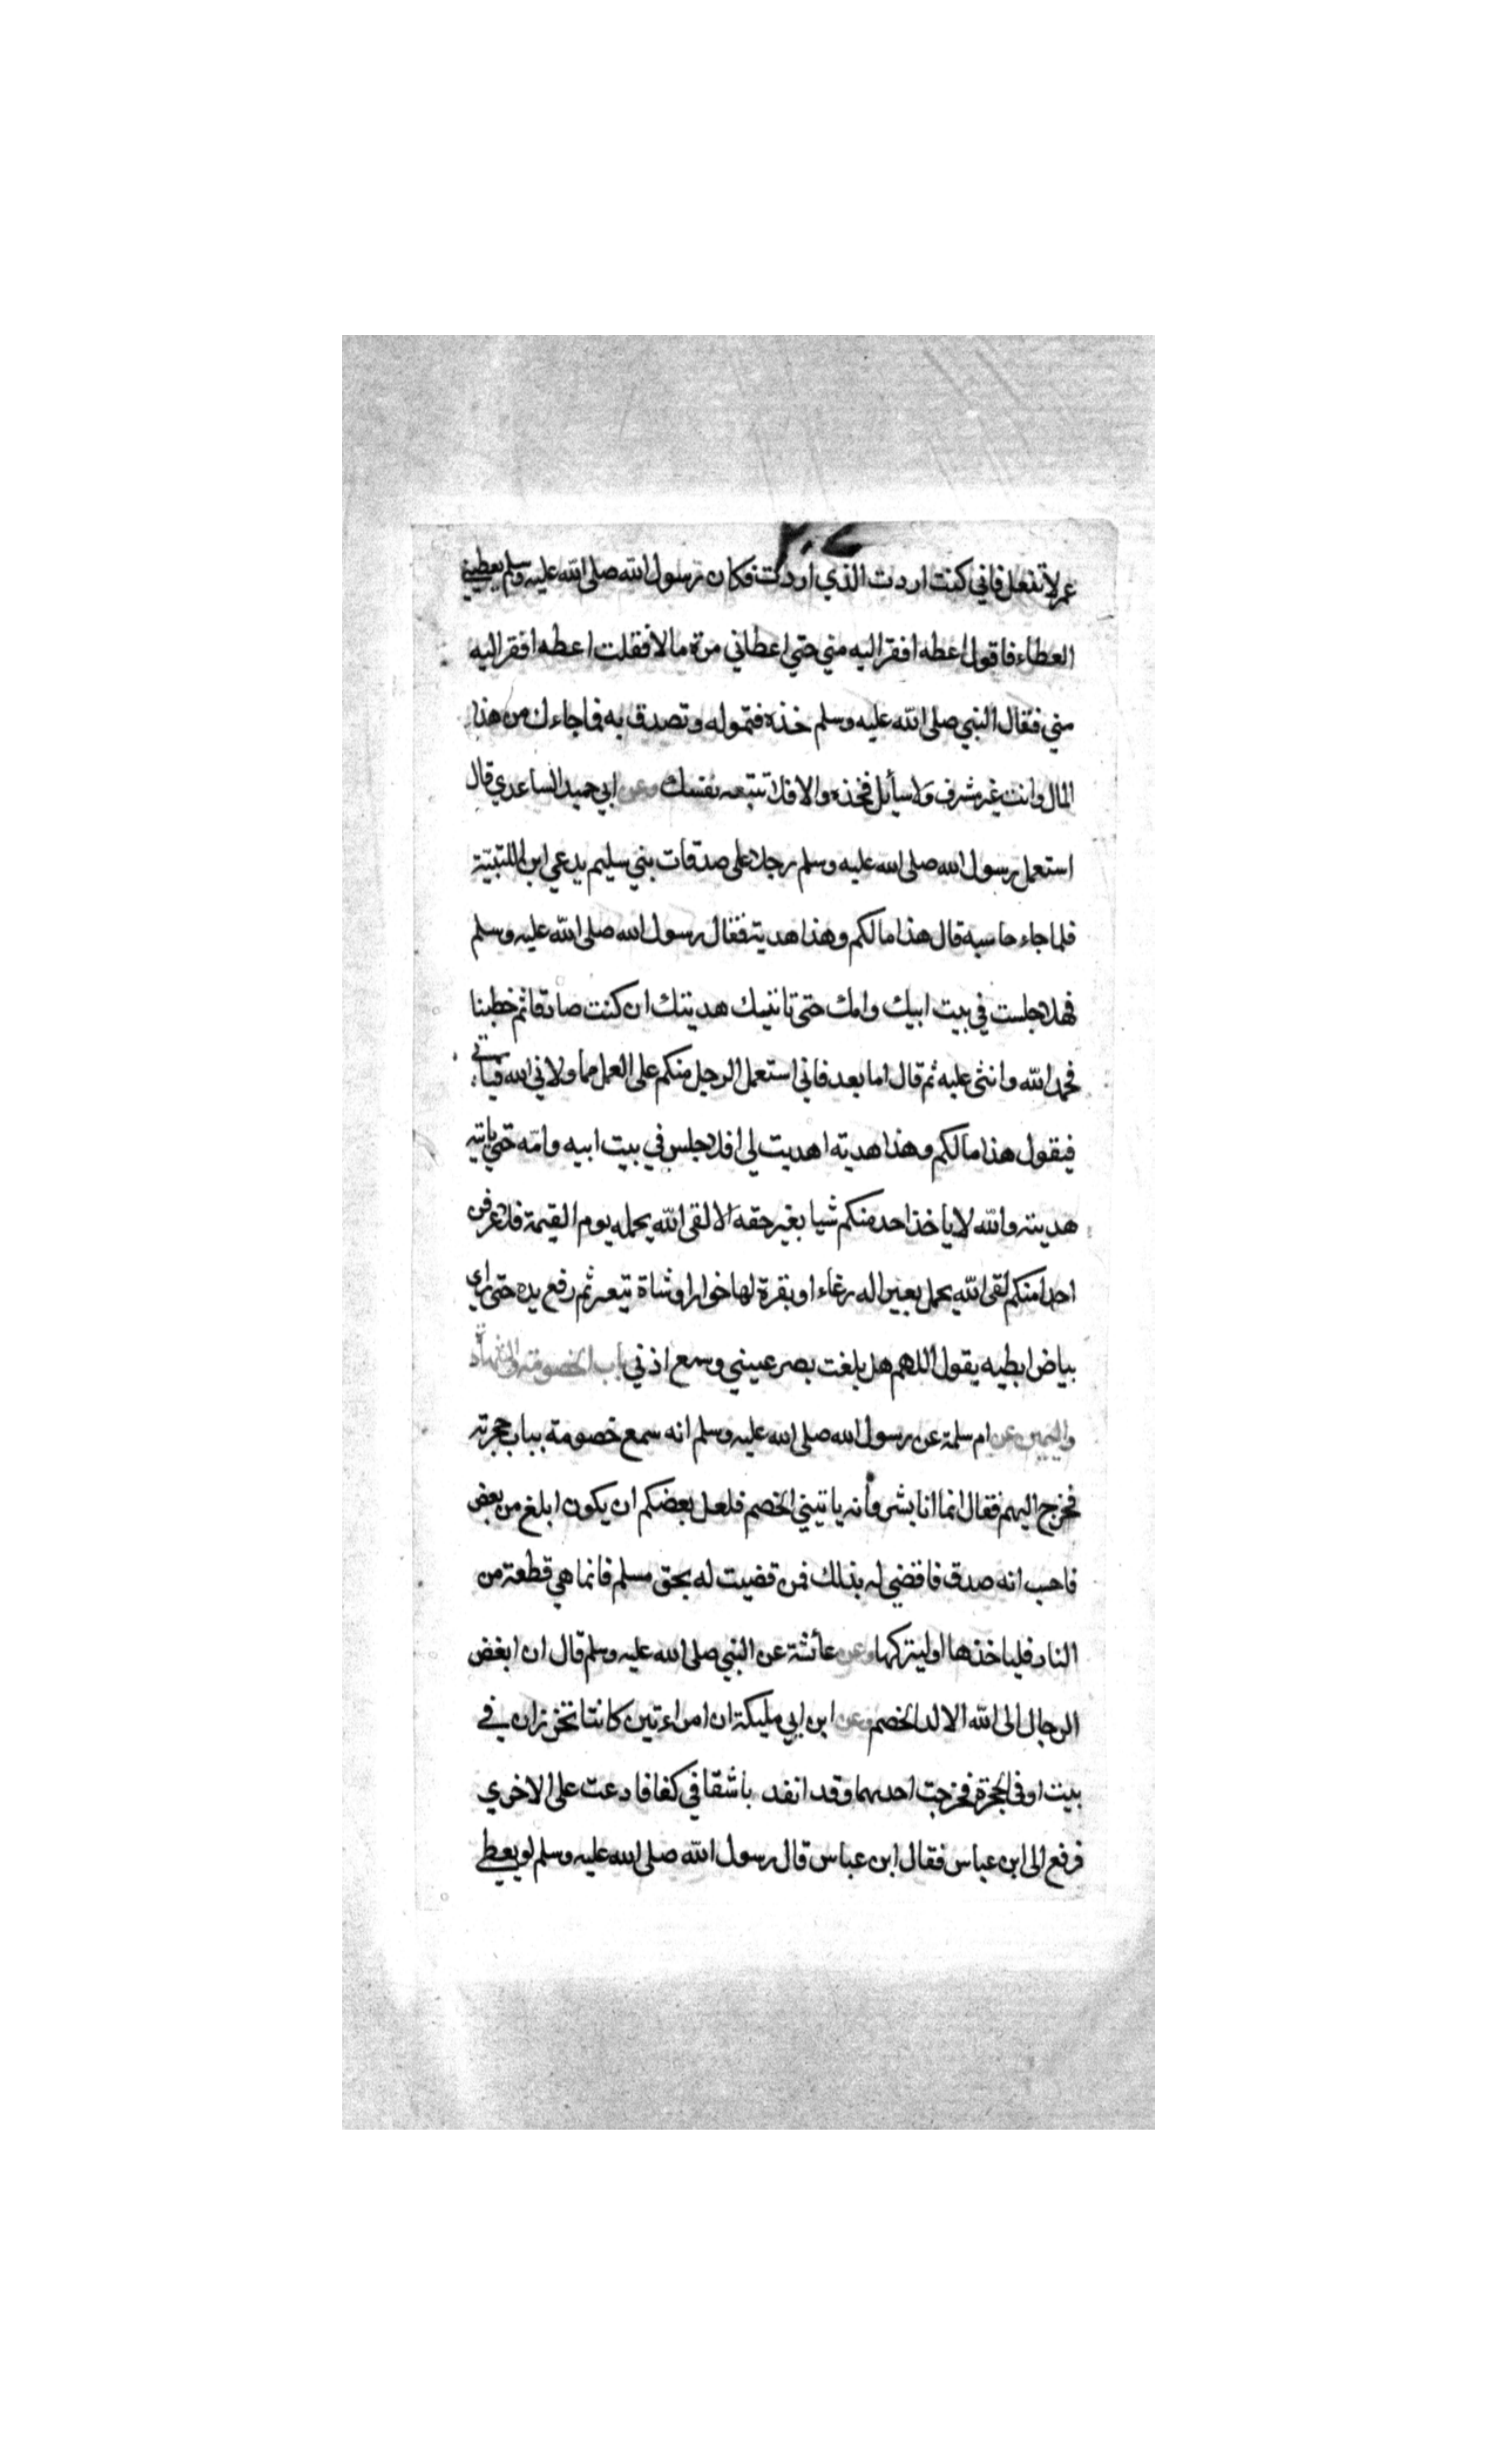 عمر لا تفعل فاني كنت اردت الذي اردت فكان رسول الله صلى الله عليه وسلم يعطيني
العطاء فاقول اعطه افقر اليه مني حتي اعطاني مرة مالا فقلت اعطه افقر اليه
مني فقال النبي صلى الله عليه وسلم خذه فتموله وتصدق به فما جاءك من هذا
المال وانت غير مشرف ولا سأيل فخذه والا فلا تتبعه نفسك وعن ابي حميد الساعدي قال
استعمل رسول الله صلى الله عليه وسلم رجلا على صدقات بني سليم يدعي ابن اللتبيّة
فلما جاء حاسبه قال هذا مالكم وهذا هدية فقال رسول الله صلى الله عليه وسلم
فهلا جلست في بيت ابيك وامك حتى تاتيك هديتك ان كنت صادقا ثم خطبنا
فحمد الله واثنى عليه ثم قال اما بعد فاني استعمل الرجل منكم على العمل مما ولاني الله فياتي
فيقول هذا مالكم وهذا هدية اهديت لي افلا جلس في بيت ابيه وامه حتي ياتيه
هديته والله لا ياخذ احد منكم شيا بغير حقه الا لقى الله يحمله يوم القيمة فلاعرفن
احدا منكم لقى الله يحمل بعيرا له رغاء او بقرة لها خوار او شاة تيعر ثم رفع يده حتى راي
بياض ابطيه يقول اللهم هل بلغت بصر عيني وسمع اذني باب الخصومة والشهادة
واليمين عن ام سلمة عن رسول الله صلى الله عليه وسلم انه سمع خصومة بباب حجرته
فخرج اليهم فقال انما انا بشر وأنه ياتيني الخصم فلعل بعضكم ان يكون ابلغ من بعض
فاحب انه صدق فاقضي له بذلك فمن قضيت له بحق مسلم فانما هي قطعة من
النار فلياخذها او ليتركها وعن عائشة عن النبي صلى الله عليه وسلم قال ان ابغض
الرجال الى الله الالد الخصم وعن ابن ابي مليكة ان امراءتين كانتا تخرزان في
بيت او في الحجرة فخرجت احدهما وقد انفد باشفا في كفها فادعت على الاخري
فرفع الى ابن عباس فقال ابن عباس قال رسول الله صلى الله عليه وسلم لو يعطي